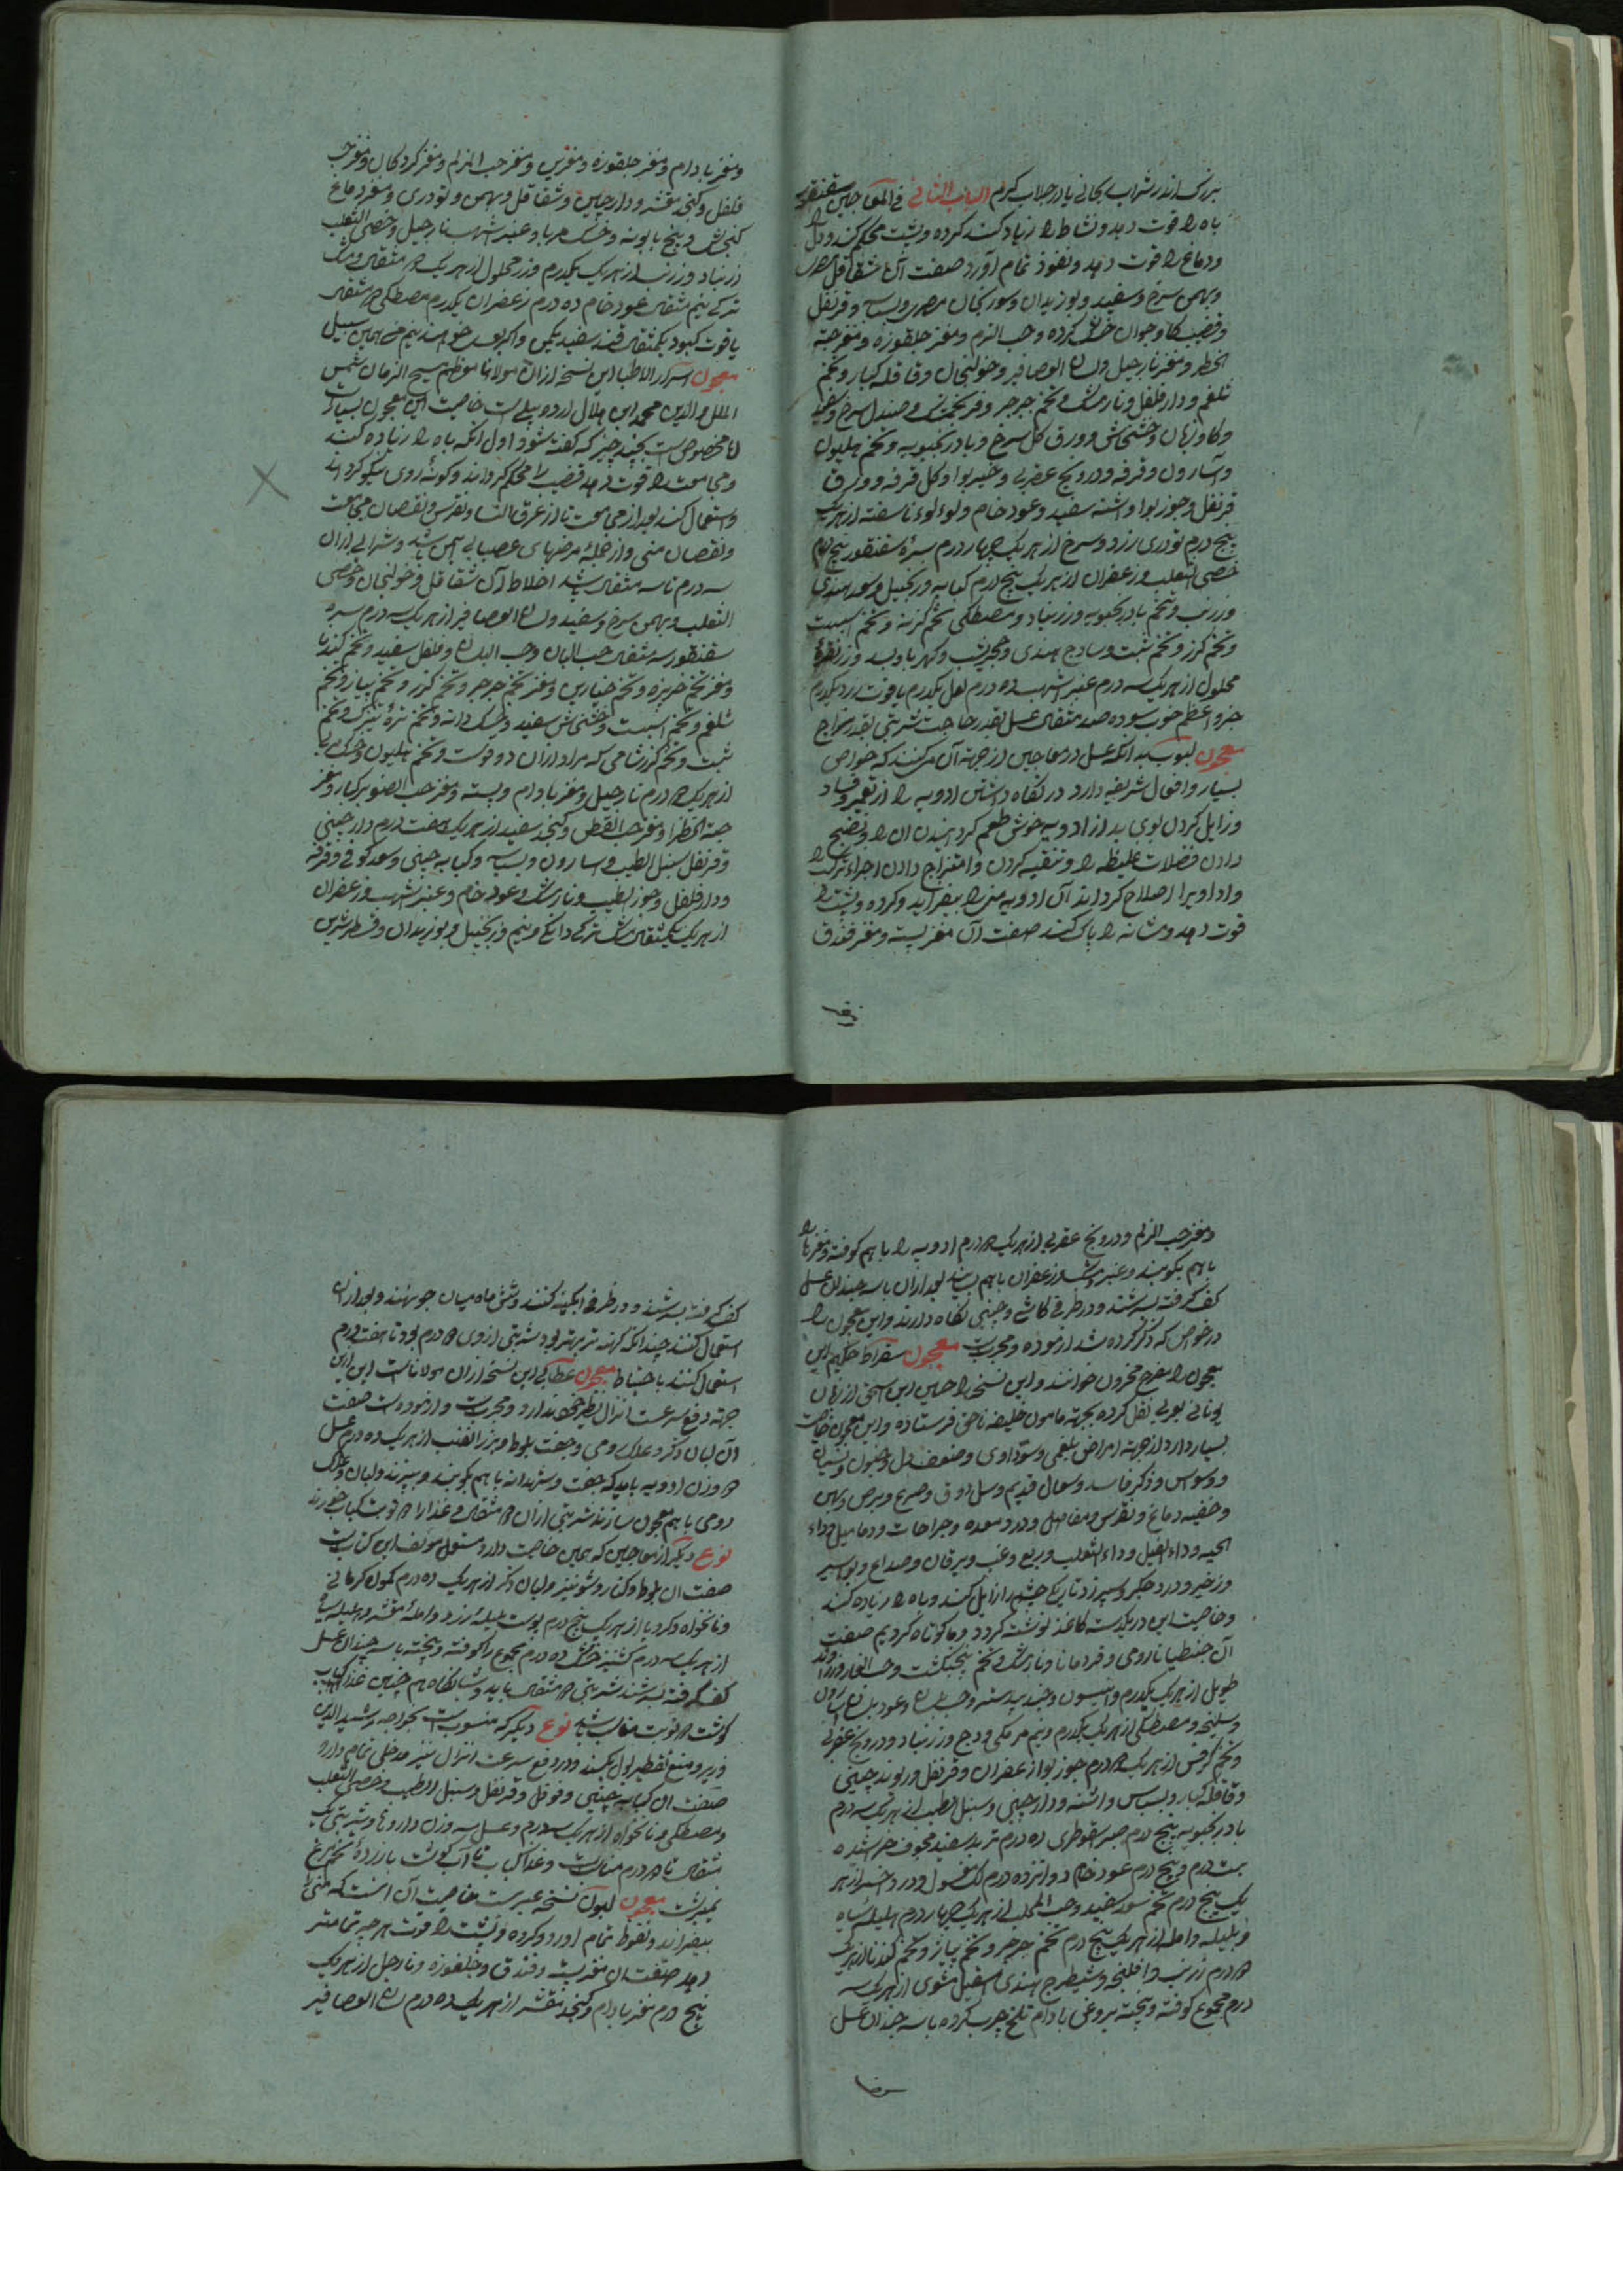 بزرگ اندر شراب ریحانی یا در جلاب کرم الباب الثانی فی المعاجین سقنقور
باه را قوت دهد و نشاط را زیاد کند کرده و پشت محکم کند و دل را
و دماغ را قوت دهد و نفوذ تمام آورد صفت آن شقاقل مصری
و بهمن سرخ و سفید و بوزیدان و سورنجان مصری و بسباسه و قرنفل
و قضیب کاو جوان خشک کرده و حب الزلم و مغز جلغوزه و مغز حبة
الخضرا و مغز نارجیل و لسان العصافیر و خولنجان و قاقله کبار و تخم
شلغم و دارفلفل و نارمشک و تخم جرجیر و فرنجمشک و صندل سرخ و سفید
و کاوزبان و خشخاش و ورق کل سرخ و بادرنجبویه و تخم هلیون
و آسارون و قرفه و درونج عقربی و خیربوا و کل قرفه و ورق
قرنفل و جوزبوا و اشنه سفید و عود خام و لوءلوء ناسفته از هر یک
پنج درم تودری زرد و سرخ از هر یک چهار درم سرهٔ سقنقور پنج درم
خصی الثعلب و زعفران از هر یک پنج درم کبابه و زنجبیل و سعد هندی
و زرنب و تخم بادرنجبویه و زرنباد و مصطکی تخم کزنه و تخم اسپست
و تخم کزر و تخم شبت و ساذج هندی و حجر یشب و کهربا و بسد و زر نقره
محلول از هر یک سه درم عنبر اشهب ده درم لعل یکدرم یاقوت زرد یکدرم
جزو اعظم خوب سوده صد مثقال عسل بقدر حاجت شربتی بقدر مزاج
معجون لبوب بدانکه عسل در معاجین از جهة آن می‌کنند که خواص
بسیار و افعال شریفه دارد در نگاه داشتن ادویه را از تغیر و فساد
و زایل کردن بوی بد از ادویه خوش طعم کردانیدن آن را و نضج
دادن فضلات غلیظه را و تنقیه کردن و امتزاج دادن اجزاء ترکیب را
و ادا ویرا اصلاح کرداند آن ادویه منی را بیفزاید و کرده و پشت را
قوت دهد و مثانه را پاک کند صفت آن مغز پسته و مغز فندق
و مغز بادام و مغز جلغوزه و مغز حب الزلم و مغز کردکان و مغز حب
فلفل و کنجد مقشر و دارچینی و شقاقل و بهمن و تودری و مغز دماغ
کنجشک و بیخ بابونه و خسک مربا و عنبر اشهب نارجیل و خصی الثعلب
زرنباد و زرنب از هر یک یکدرم و زر محلول از هر یک مثقال و مشک
ترکی نیم مثقال عود خام ده درم زعفران یکدرم مصطکی مثقال
یاقوت کبود یکمثقال قند سفید یکمن و اکر بوی خواهند نیم من همین سبیل
معجون اسرار الاطبا این نسخه از ان مولانا معظم مسیح الزمان شمس
الملل و الدین محمد ابن هلال اردبیلی است خاصیت این معجون بسیارست
اما مخصوص است بچند چیز که گفته شود اول انکه باه را زیاده کند
و مجامعت را قوت دهد قضیب را محکم کرداند و کونهٔ روی نیکو کرداند
و استعمال کند بعد از مجامعت تا از عرق النسا و نقرس و نقصان مجامعت
و نقصان منی و از جملهٔ مرضهای عصبانی ایمن باشد و شربتی از ان
سه درم تا سه مثقال باشد اخلاط آن شقاقل و خولنجان و خصی
الثعلب و بهمن سرخ و سفید و لسان العصافیر از هر یک سه درم سره
سقنقور سه مثقال حب البان و حب البلسان و فلفل سفید و تخم کندنا
و مغز تخم خربزه و تخم خیارین و مغز تخم جرجیر و تخم کزر و تخم پیاز و تخم
شلغم و تخم اسپست و خشخاش سفید و خسک دانه و تخم ترهٔ تیزک و تخم
شبت و تخم کزر شامی که مراد از ان دوقوست و تخم هلیون و خسک مربا
از هر یک درم نارجیل و مغز بادام و پسته و مغز حب الصنوبر کبار و مغز
حبة الخضرا و مغز حب القطن و کنجد سفید از هر یک هفت درم دارچینی
و قرنفل سنبل الطیب و اسارون و بسباسه و کبابه چینی و سعد کوفی و قرفه
و دارفلفل و جوز الطیب و نارمشک و عود خام و عنبر اشهب و زعفران
از هر یک یکمثقال مشک ترکی دانکی و نیم و زنجبیل و بوزیدان و قسط شیرین
و مغز حب الزلم و درونج عقربی از هر یک درم ادویه را با هم کوفته و مغزها را
با هم بکوبند و عنبر و مشک و زعفران با هم بسایند بعد از ان با سه چندان عسل
کف کرفته بسرشند و در ظرفی کاشی و چینی نکاه دارند و این معجون را
در خواص که ذکر کرده شد ازموده و مجربست معجون سقراط حکیم این
معجون را مفرح مخزون خوانند و این نسخه را حنین ابن اسحق از زبان
یونانی بعربی نقل کرده بجهة مامون خلیفه ناحق فرستاده و این معجون خاصیت
بسیار دارد از جهة امراض بلغمی و سوداوی و ضعف دل و جنون و نسیان
و وسواس و ذکر فاسد و سعال قدیم و سل و دق و صرع و برص و بهق
و خفیه دماغ و نقرس و مفاصل و درد معده و جراحات و دمامیل و داء
الحیه و داء الفیل و داء الثعلب و ربع و غب و یرقان و صداع و بواسیر
و زحیر و درد جکر و سپرز و تاریکی چشم را زایل کند و باه را زیاده کند
و خاصیت این در یکدسته کاغذ نوشته کردد و ما کوتاه کردیم صفت
آن جنطیانا رومی و قردمانا و نارمشک و تخم پنجنکشت و حب الغار و زراوند
طویل از هر یک یکدرم و انیسون و جندبیدستر و حب بلسان و عود بلسان و اسارون
و سلیخه و مصطکی از هر یک یکدرم و نیم مر مکی و وج و زرنباد و درونج عقربی
و تخم کرفس از هر یک درم جوزبوا زعفران و قرنفل و ریوند چینی
و قاقله کبار و بسباس و اشنه و دارچینی و سنبل الطیب از هر یک سه درم
بادرنجبویه پنج درم صبر سقوطری ده درم تربد سفید مجوف خراشیده
بیست درم و پنج درم عود خام دوانزده درم لک مغسول و درد خمر از هر
یک پنج درم تخم سفید و حب المحلب از هر یک چهار درم هلیله سیاه
و بلیله و امله از هر یک پنج درم تخم جرجیر و تخم پیاز و تخم کندنا از هر یک
درم زرنیب و افلنجه و شیطرج هندی اسقیل مشوی از هر یک سه
درم مجموع کوفته و پخته بروغن بادام تلخ چرب کرده با سه چندان عسل
کف کرفته بسرشند و در ظرفی ابکینه کنند و شش ماه میان جو نهند و بعد از ان
استعمال کنند چندانکه کهنه تر بهتر بود شربتی از وی درم بود تا هفت درم
استعمال کنند باحتیاط معجون عطایی این نسخه از ان مولاناست این
جهة دفع سرعت انزال نظیر خود ندارد و مجربست و ازموده است صفت
آن لبان ذکر و علک رومی و جفت بلوط و بزر القنب از هر یک ده درم عسل
وزن ادویه باید که جفت و شهدانه با هم بکوبند و بپزند و لبان و علک
رومی با هم معجون سازند شربتی از ان مثقال و غذا را نوبت کباب خورند
نوع دیکر از معاجین که همین خاصیت دارد منقول مؤلف این کتابست
صفت ان بلوط و کنار و شونیز و لبان ذکر از هر یک ده درم کمون کرمانی
و نانخواه و کرویا از هر یک پنج درم پوست هلیلهٔ زرد و املهٔ مقشر و هلیله سیاه
از هر یک سه درم کشنیز خشک ده درم مجموع را کوفته و پخته با سه چندان عسل
کف کرفته بسرشند شربتی مثقال باید و شبانکاه هم چنین غذا کباب
کوشت نوبت مناسب باشد نوع دیکر که منسوب است بخواجه رشید الدین
وزیر و منع تقطیر بول بکند و در دفع سرعت انزال نیز مدخلی تمام دارد
صفت ان کبابه چینی و فوفل و قرنفل و سنبل الطیب و خصی الثعلب
و مصطکی و نانخواه از هر یک سه درم و عسل سه وزن داروها و شربتی یک
مثقال تا درم مناسبت و غذا کباب تا آب کوشت با زردهٔ تخم مرغ
نیمبرشت معجون لبوب نسخه غیرست خاصیت آن انست که منی را
بیفزاید و نعوظ تمام اورد و کرده و پشت را قوت هر چه تمامتر
دهد صفت ان مغز پسته و فندق و جلغوزه و نارجیل از هر یک
پنج درم مغز بادام و کنجد مقشر از هر یک ده درم لسان العصافیر